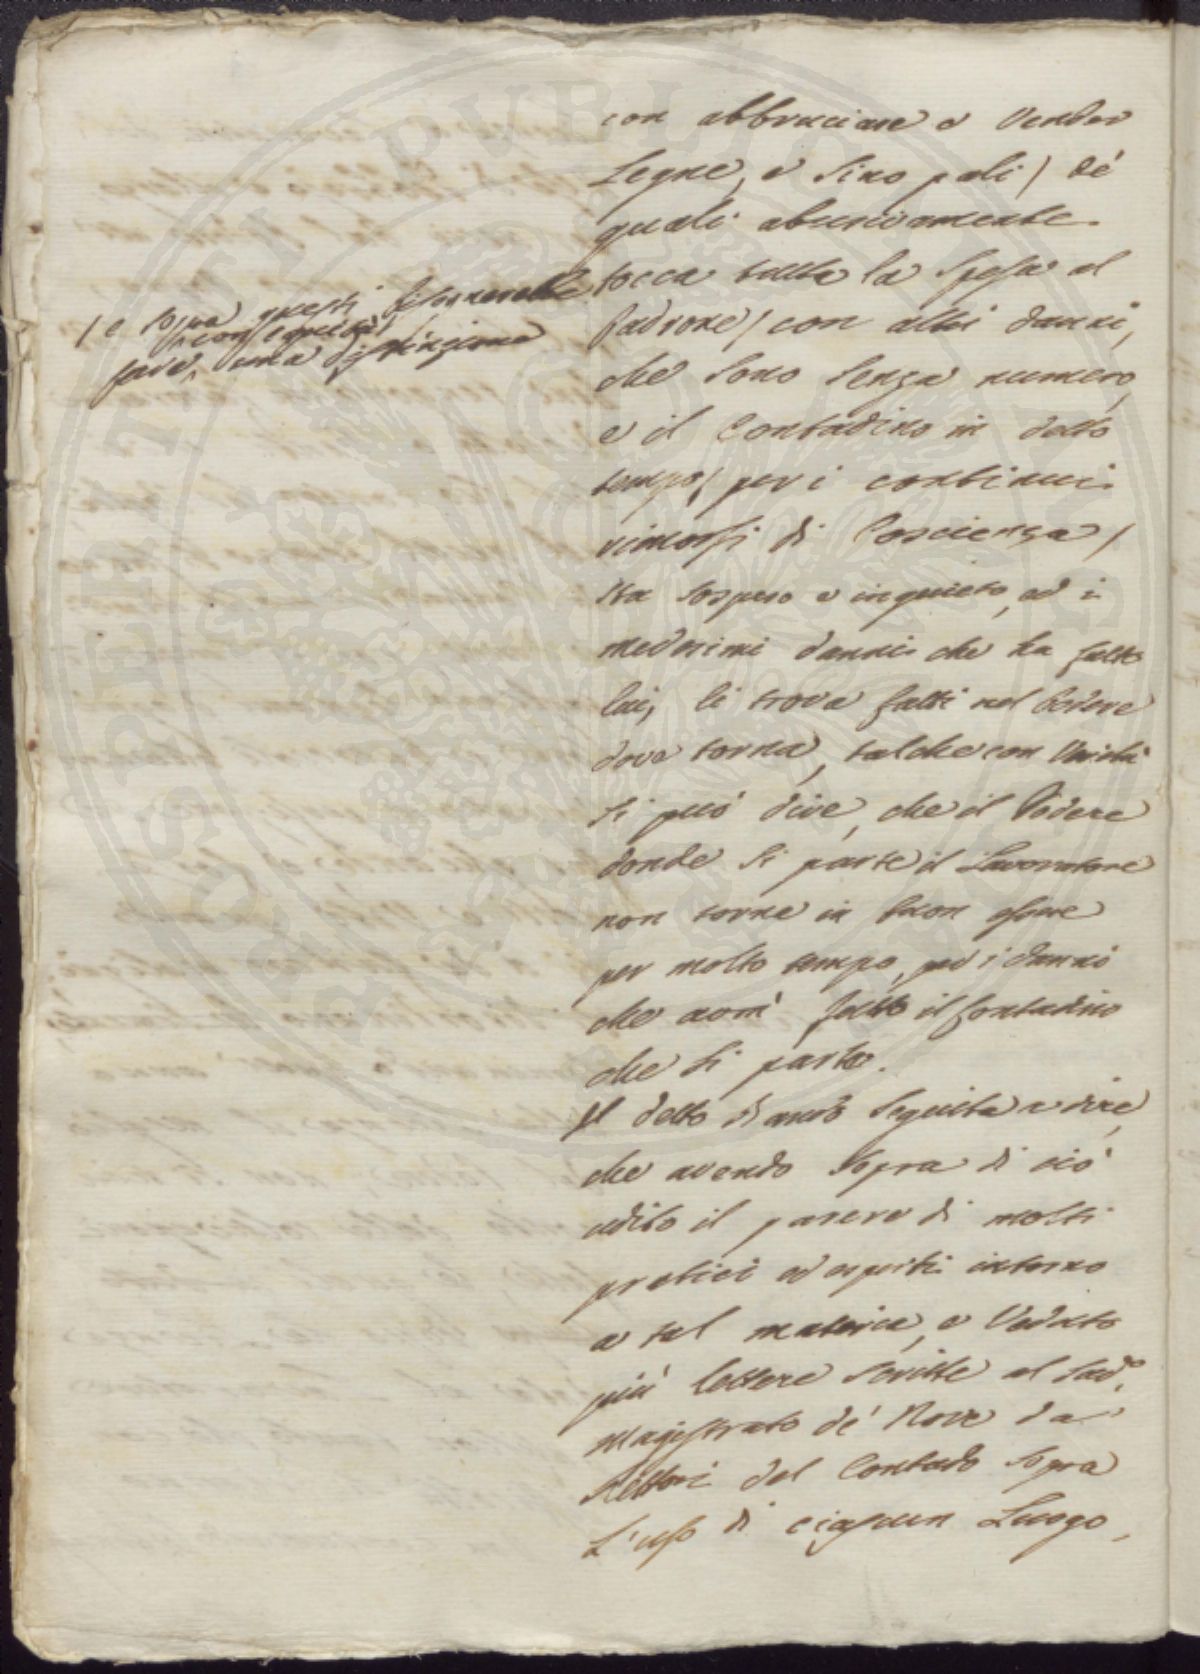 con abbruciare e Vender
Legne, e sino pali / de'
quali abusivamente
tocca tutta la spesa al
Padrone / con altri danni,
che sono senza numero,
e il Contadino in detto
tempo, / per i continui
rimorsi di Coscienza /
sta sospeso e inquieto, ed i
medesimi danni che ha fatto
lui, li trova fatti nel Podere
dove torna, talche con Verità
si può dire, che il Podere
donde si parte il Lavoratore
non torne in buon essere
per molto tempo, per i danni
che avrà fatto il Contadino
che si parte.
Il detto seguita a dire,
che avendo sopra di ciò
udito il parere di molti
pratici ed esperti intorno
a tal materia, e Veduto
più lettere scritte al sud.º
Magistrato de' Nove da
Rettori del Contado sopra
L'uso di ciascun Luogo,
/ e sopra questi bisognerebbe
con equità
fare una distinzione